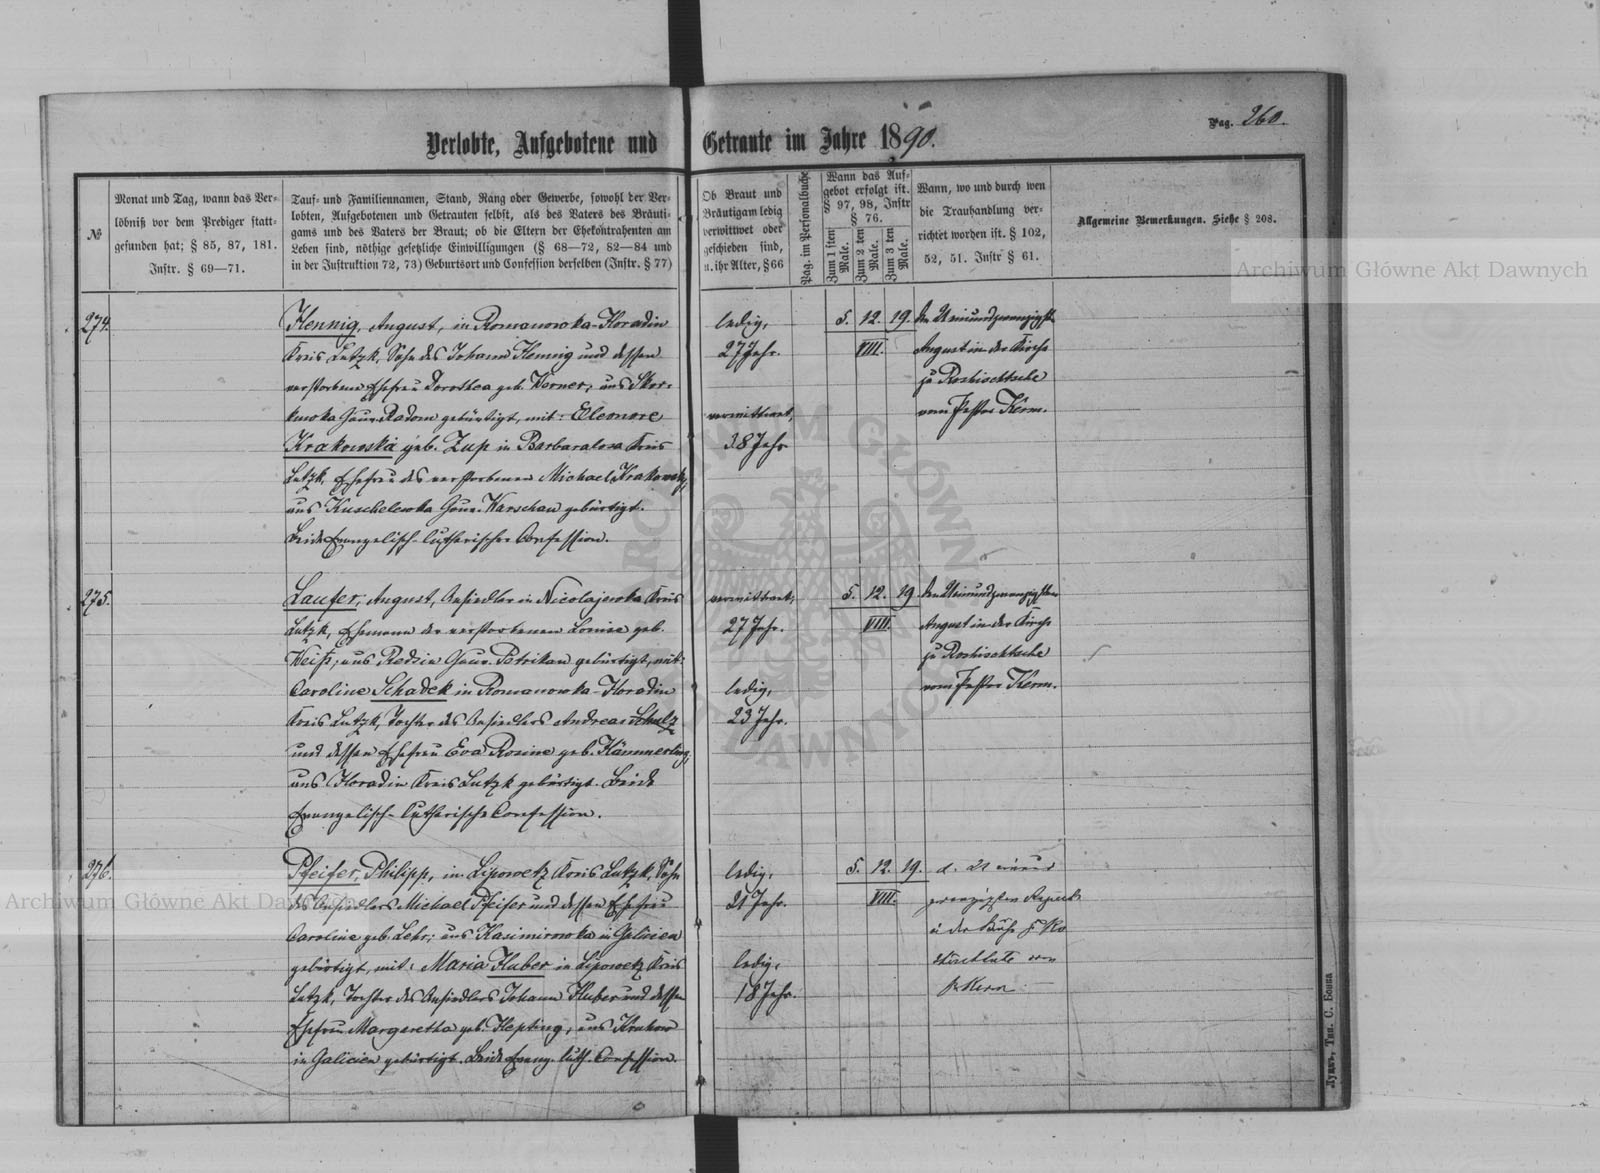 Pag. 260.
Verlobte, Aufgebotene und Getraute im Jahre 1890.
№
Monat und Tag, wann das Ver-
löbniß vor dem Prediger statt-
gefunden hat; § 85, 87, 181.
Instr. § 69—71.
Tauf- und Familiennamen, Stand, Rang oder Gewerbe, sowohl der Ver-
lobten, Aufgebotenen und Getrauten selbst, als des Vaters des Bräuti-
gams und des Vaters der Braut; ob die Eltern der Ehekontrahenten am
Leben sind, nöthige gesetzliche Einwilligungen (§ 68—72, 82—84 und
in der Instruktion 72, 73) Geburtsort und Confession derselben (Instr. § 77)
Ob Braut und
Bräutigam ledig
verwittwet oder
geschieden sind,
u. ihr Alter, § 66
Pag. im Personalbuche
Wann das Auf-
gebot erfolgt ist.
§ 97, 98, Instr
§ 76.
Zum 1 sten Male.
Zum 2 ten Male.
Zum 3 ten Male.
Wann, wo und durch wen
die Trauhandlung ver-
richtet worden ist. § 102,
52, 51. Instr § 61.
Allgemeine Bemerkungen. Siehe § 208.
274.
Hennig, August, in Romanowka-Horadin
Kreis Lutzk, Sohn des Johann Hennig und dessen
verstorbene Ehefrau Dorothea geb. Werner; aus
Gouv. Radom gebürtigt, mit: Eleonore
Krakowska geb. Zup in Barbaralova Kreis
Lutzk, Ehefrau des verstorbenen Michael Krakowsky,
aus Kuschelewka Gouv. Warschau gebürtigt.
Beide Evangelisch-lutherischer Confession.
ledig,
27 Jahr.
verwittwet,
38 Jahr
5. 12. 19.
VIII.
den Einundzwanzigsten
August in der Kirche
zu Roshischtsche
vom Pastor Kerm.
275.
Laufer, August, Ansiedler in Nicolajewka Kreis
Lutzk, Ehemann der verstorbenen Louise geb.
Weiß; aus Redzin Gouv. Petrikau gebürtigt, mit:
Caroline Schadek in Romanowka-Horadin
Kreis Lutzk, Tochter des Ansiedlers Andreas Schulz
und dessen Ehefrau Eva Rosine geb. Kämmerling,
aus Horadin Kreis Lutzk gebürtigt. Beide
Evangelisch-lutherische Confession.
verwittwet;
27 Jahr.
ledig,
23 Jahr.
5. 12. 19
VIII.
den Einundzwanzigsten
August in der Kirche
zu Roshischtsche
vom Pastor Kerm.
276.
Pfeifer, Philipp, in Lipowetz Kreis Lutzk, Sohn
des Ansiedlers Michael Pfeifer und dessen Ehefrau
Caroline geb. Lehr; aus Kasimirowka in Galicien
gebürtigt, mit: Maria Huber in Lipowetz Kreis
Lutzk, Tochter des Ansiedlers Johann Huber und dessen
Ehefrau Margaretha geb. Hepting, aus Krakow
in Galicien gebürtigt. Beide Evang. luth. Confession.
ledig,
21 Jahr.
ledig,
18 Jahr.
5. 12. 19.
VIII.
d. 21
August
in der Kirche z. Ro
von
P. Kerm
Луцкъ, Тип. С. Бонка
Archiwum Główne Akt Dawnych
Archiwum Główne Akt Dawnych
ARCHIWUM GŁÓWNE AKT DAWNYCH